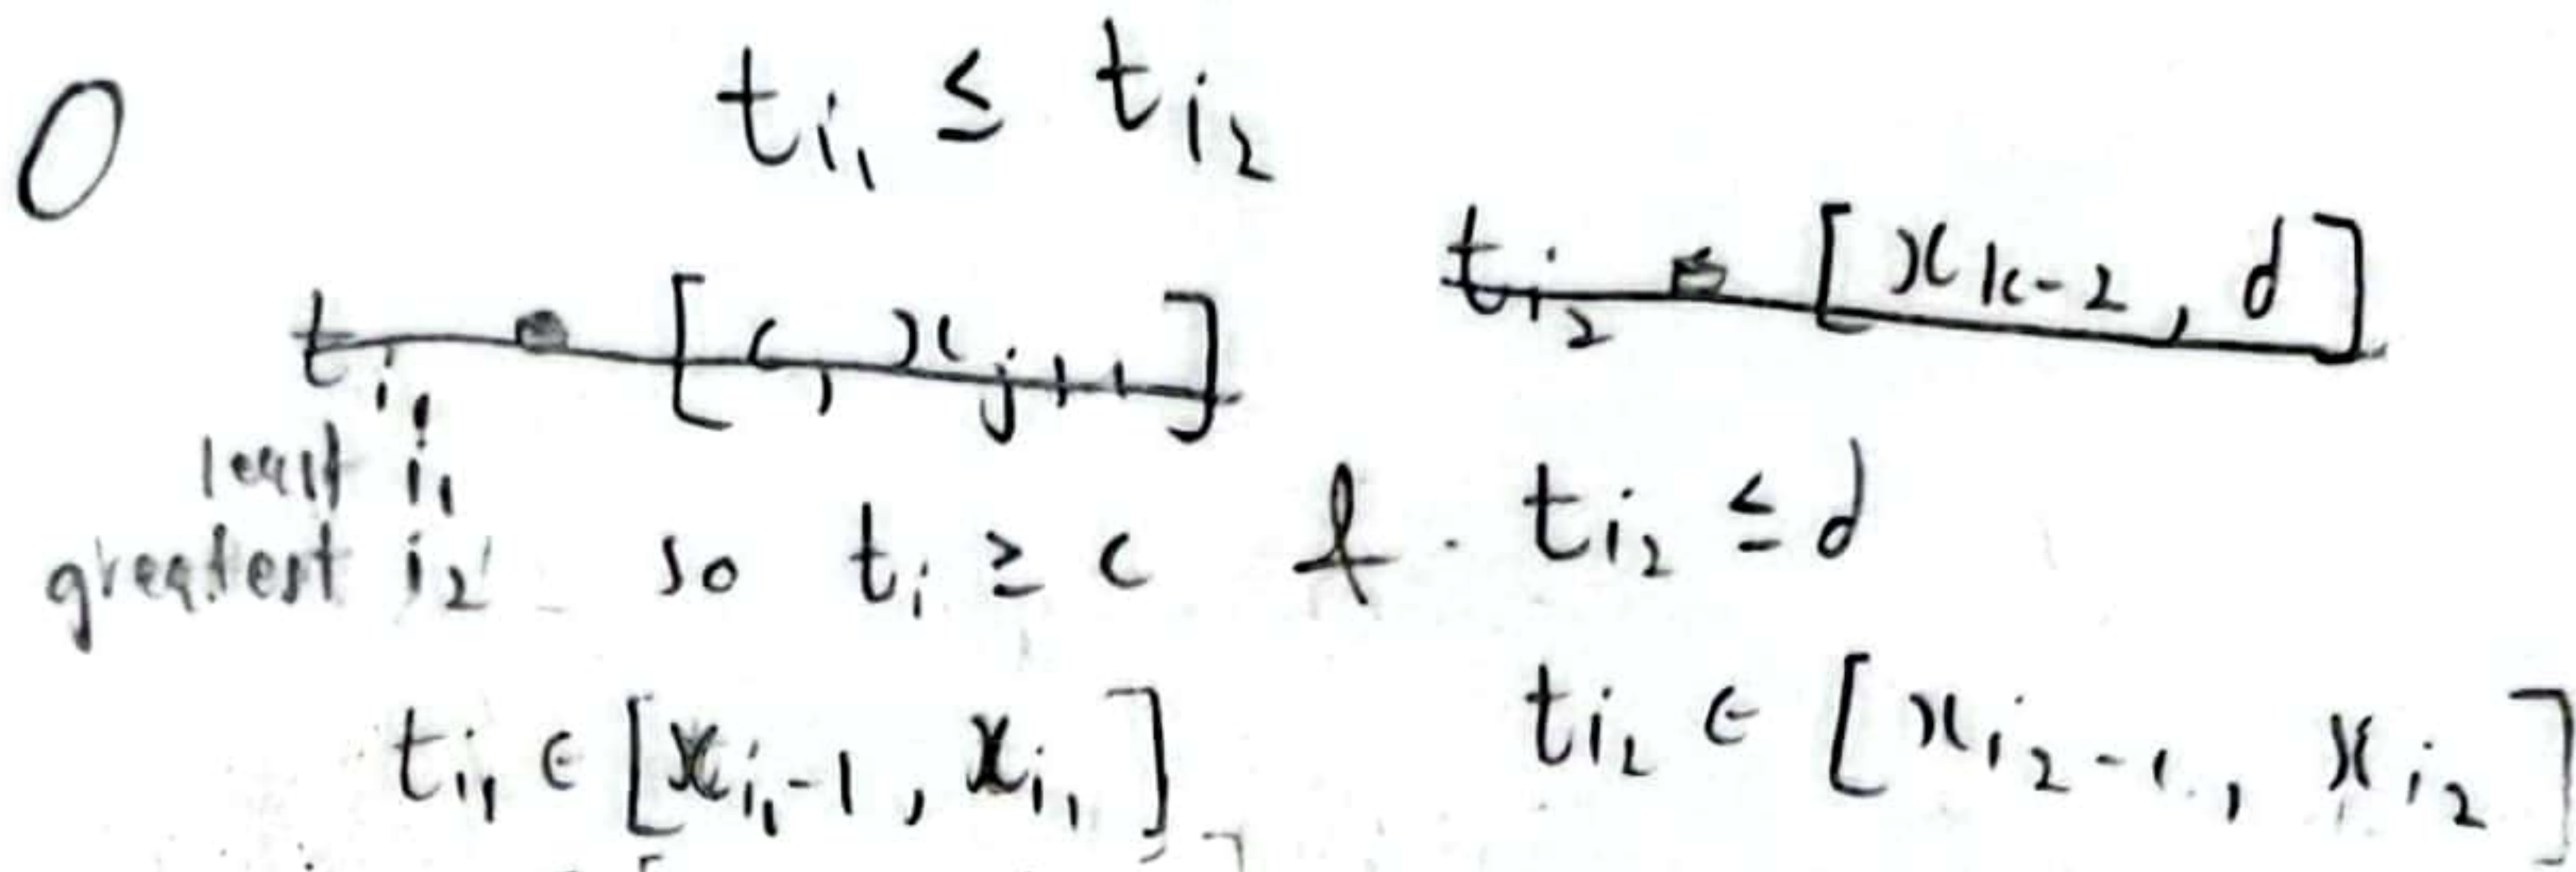 0
t_{i_1} ≤ t_{i_2}
t_{i_1} [c, x_{j+1}]
t_{i_2} [x_{k-2}, d]
least i_1
greatest i_2 so t_i ≥ c & t_{i_2} ≤ d
t_{i_1} ∈ [x_{i_1-1}, x_{i_1}] t_{i_2} ∈ [x_{i_2-1}, x_{i_2}]